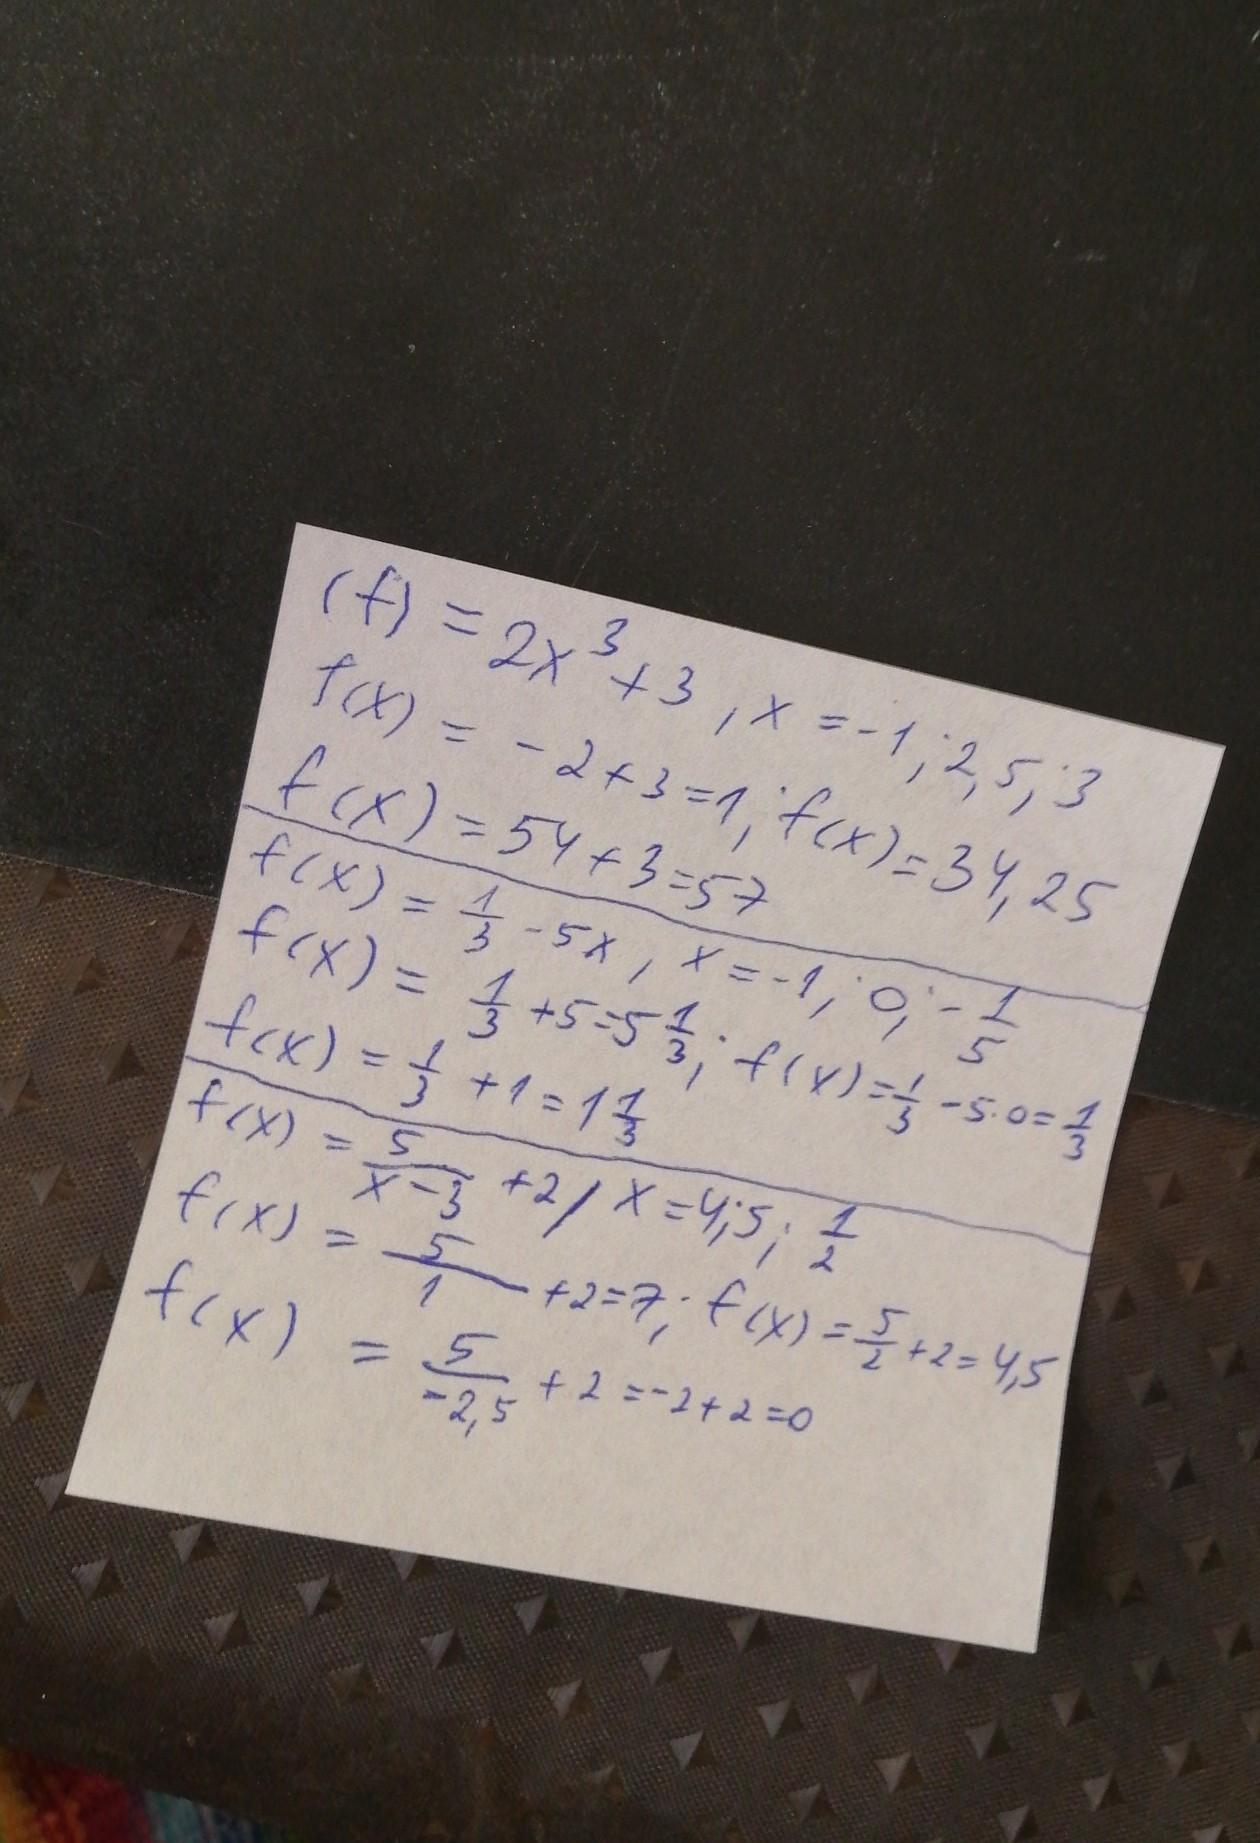 (f) = 2x³+3, x = -1; 2,5; 3
f(x) = -2+3=1; f(x)=34,25
f(x) = 54+3=57
f(x) = 1/3 -5x, x = -1; 0; -1/5
f(x) = 1/3 +5=5 1/3; f(x)=1/3 -5·0=1/3
f(x) = 1/3 +1=1 1/3
f(x) = 5/(x-3) +2, x=4;5; 1/2
f(x) = 5/1 +2=7; f(x)=5/2+2=4,5
f(x) = 5/(-2,5) +2=-2+2=0